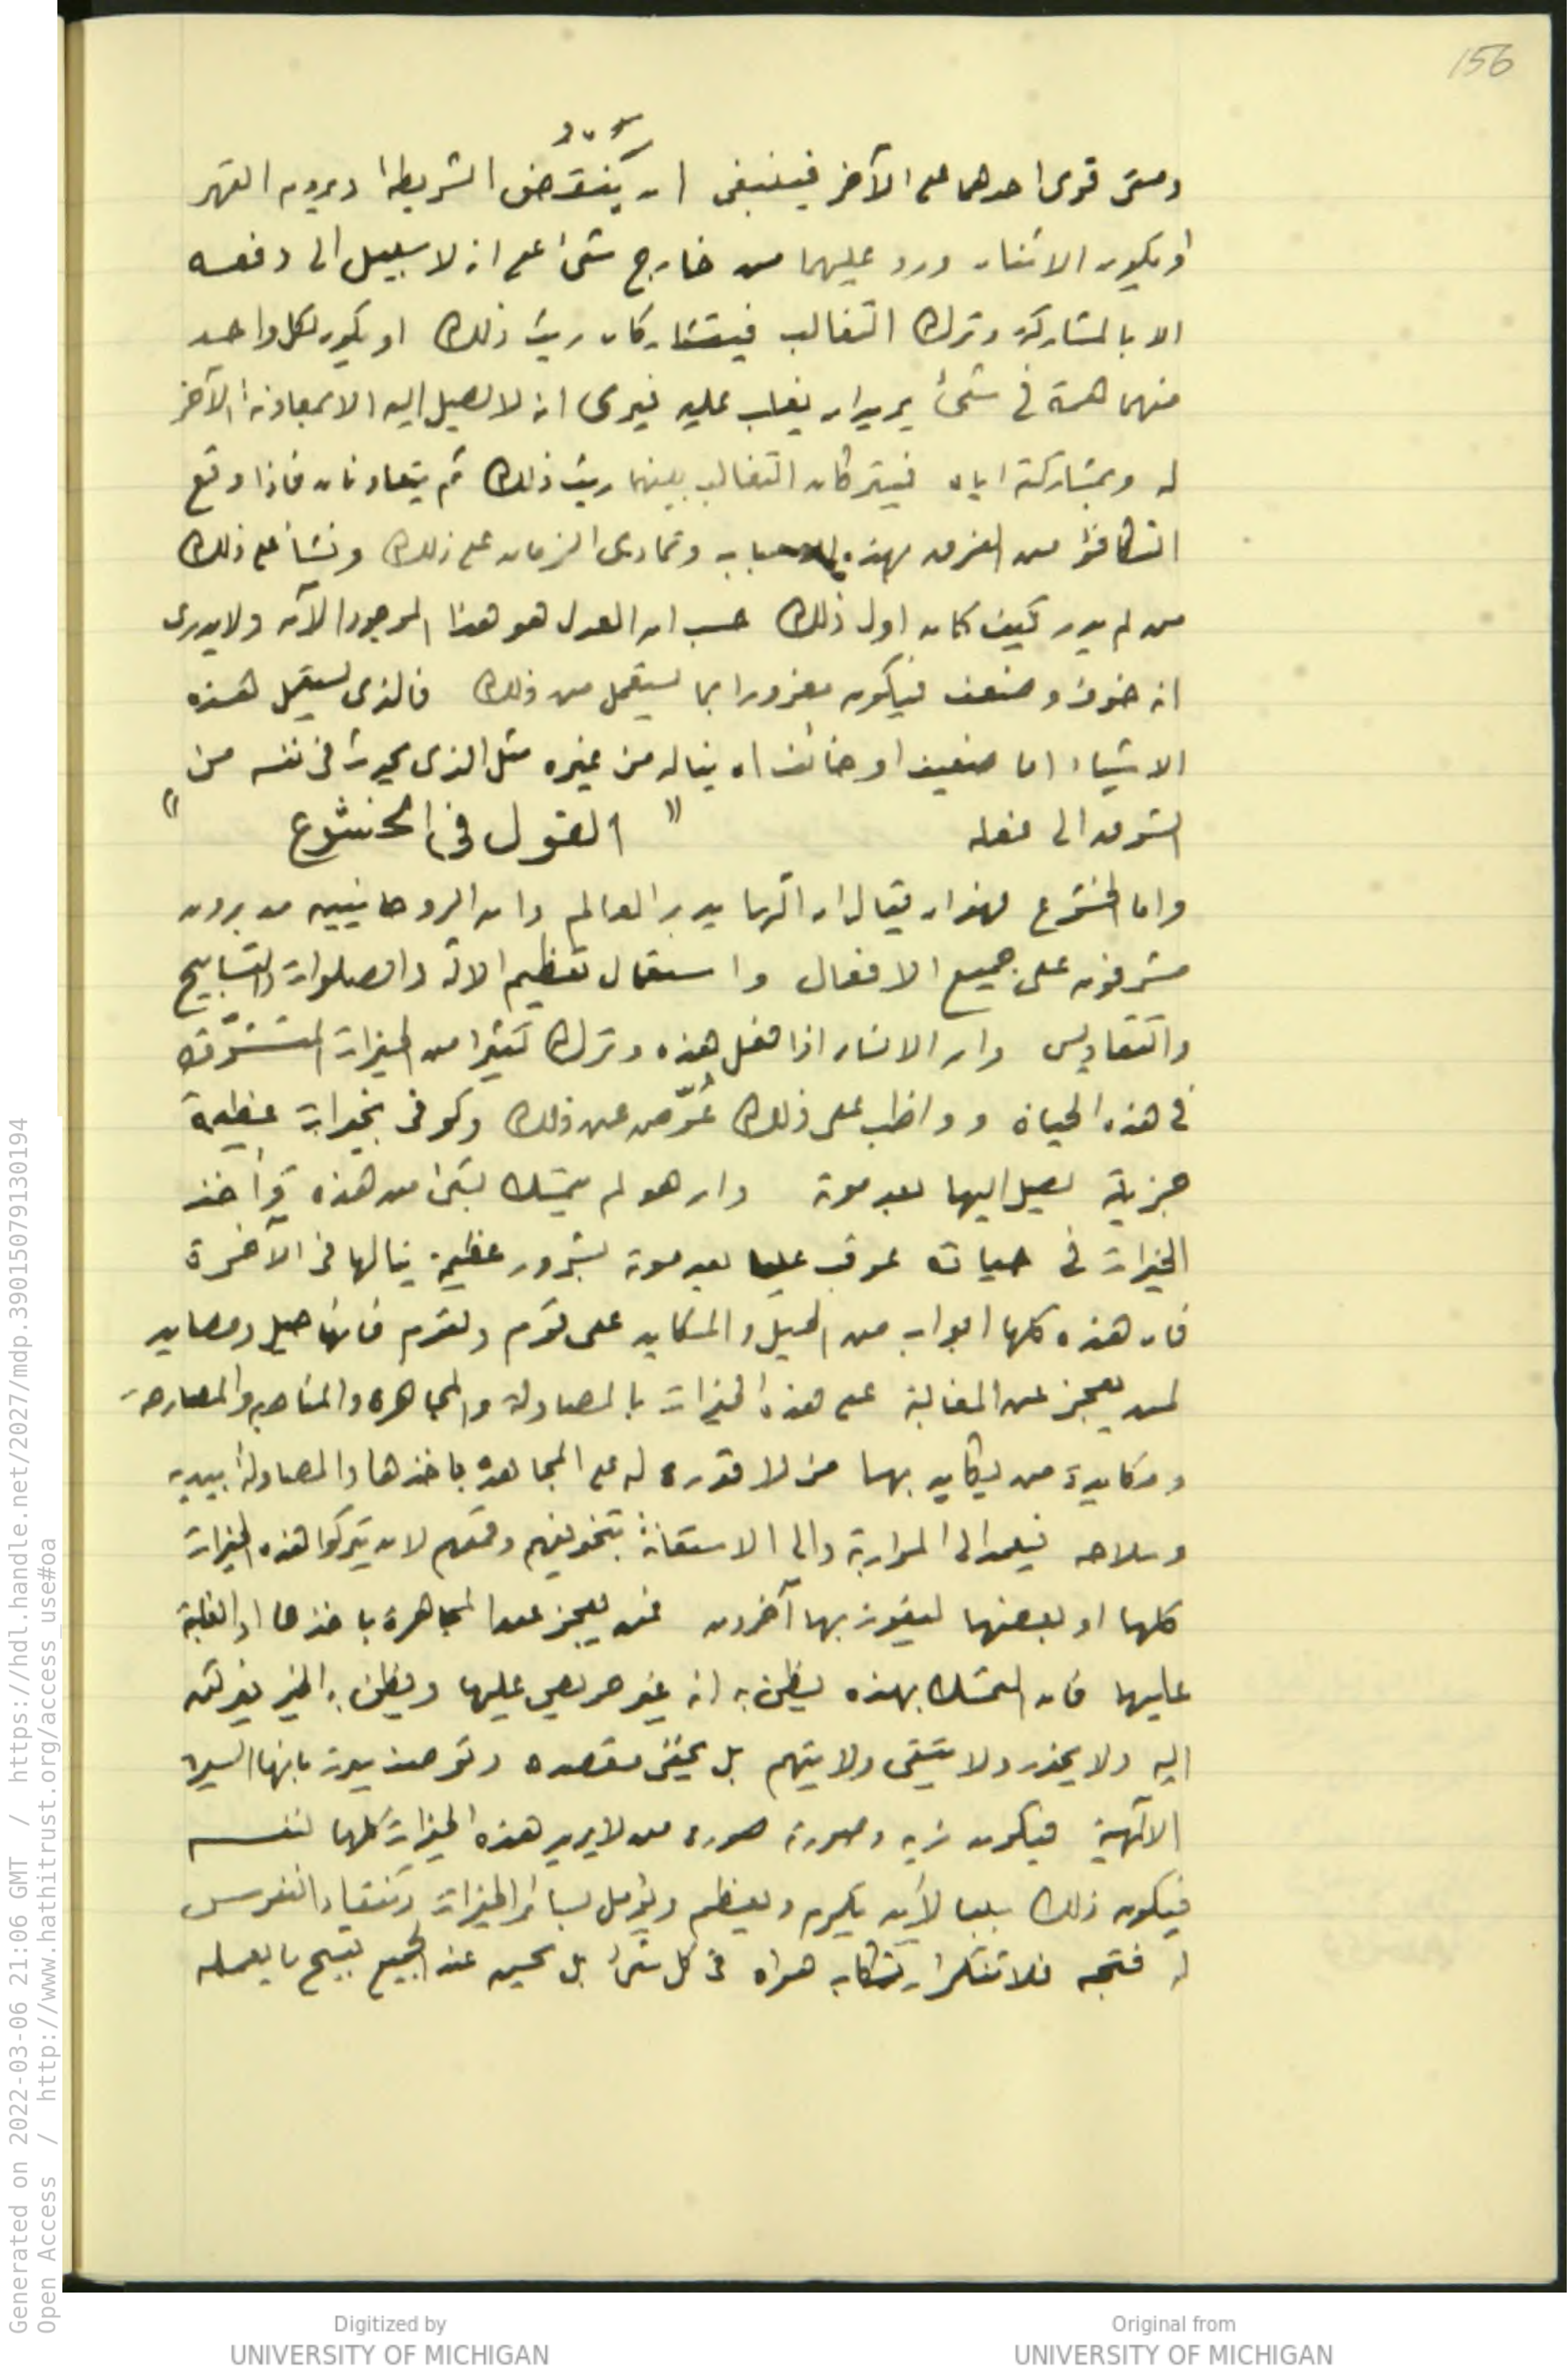 156
ومتى قوى احدهما على الآخر فينبغى ان ينقض الشريطة ويروم القهر
او يكون الاثنان ورد عليهما من خارج شىء على انه لا سبيل الى دفعه
الا بالمشاركة وترك التغالب فيتشاركان ريث ذلك او يكون لكل واحد
منهما همة فى شىء يريد ان يغلب عليه فيرى انه لا يصل اليه الا بمعاونة الآخر
له وبمشاركته اياه فيتركان التغالب بينهما ريث ذلك ثم يتعاونان فاذا وقع
التكافؤ من الفرق بهذه الاسباب وتمادى الزمان على ذلك ونشأ على ذلك
من لم يدر كيف كان اول ذلك حسب ان العدل هو هذا الموجود الآن ولا يدرى
انه خوف وضعف فيكون مغرورا بما يستعمل من ذلك فالذى يستعمل هذه
الاشياء اما ضعيف او خائف ان يناله من غيره مثل الذى يحدث فى نفسه من
الشوق الى فعله
" القول فى الخشوع "
واما الخشوع فهو ان يقال ان الٓها يدبر العالم وان الروحانيين مدبرون
مشرفون على جميع الافعال واستعمال تعظيم الالٓه والصلوات والتسابيح
والتقاديس وان الانسان اذا فعل هذه وترك كثيرا من الخيرات المتشوّقة
فى هذه الحياة وواظب على ذلك عُوّض عن ذلك وكوفى بخيرات عظيمة
جزية يصل اليها بعد موته وان هو لم يتمسك بشىء من هذه واخذ
الخيرات فى حياته عوقب عليها بعد موته بشرور عظيمة ينالها فى الآخرة
فان هذه كلها ابواب من الحيل والمكايد على قوم ولقوم فانها حيل ومصايد
لمن يعجز عن المغالبة على هذه الخيرات بالمصاولة والمجاهرة والمناصبة والمصارحة
ومكايدة من يكايد بها من لا قدرة له على المجاهدة باخذها والمصاولة بيديه
وسلاحه فيعمد الى المواربة والى الاستعانة بتخويفهم وقمعهم لان يتركوا هذه الخيرات
كلها او بعضها ليفوز بها آخرون فمن يعجز عن المجاهرة باخذها او الغلبة
عليها فان المتمسك بهذه يظن به انه غير حريص عليها ويظن به الخير فيركن
اليه ولا يحذر ولا يتقى ولا يتهم بل يخفى مقصده وتوصف سيرته بانها السيرة
الالٓهية فيكون زيه وصورته صورة من لا يريد هذه الخيرات كلها لنفسه
فيكون ذلك سببا لأن يكرم ويعظم ويؤمل لسائر الخيرات وتنقاد النفوس
له فتحبه فلا تنكر ارتكابه هواه فى كل شىء بل يحسن عند الجميع قبيح ما يعمله
Generated on 2022-03-06 21:06 GMT / https://hdl.handle.net/2027/mdp.39015079130194
Open Access / http://www.hathitrust.org/access_use#oa
Digitized by
UNIVERSITY OF MICHIGAN
Original from
UNIVERSITY OF MICHIGAN